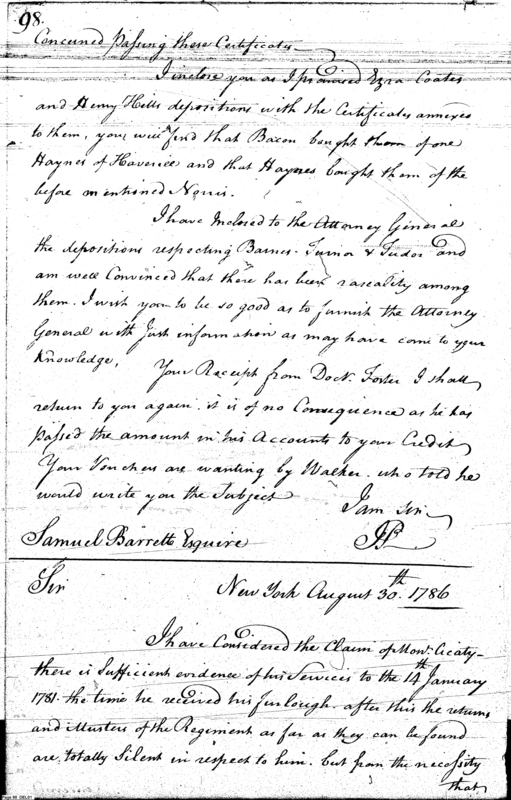 98.
Concerned passing these Certificates
I inclose you as I promised Ezra Coates
and Henry Hills depositions with the Certificates annexed
to them, you will find that Bacon bought them of one
Haynes of Haveriee and that Haynes bought them of the
before mentioned Norris.
I have Inclosed to the Attorney General
the depositions respecting Barnes. Turnor & Tudor and
am well Convinced that there has been rascality among
them. I wish you to be so good as to furnish the Attorney
General with Just information as may have come to your
Knowledge,
Your Receipt from Doct. Foster I shall
return to you again. it is of no Consequence as he has
passed the amount in his Accounts to your Credit
Your Vouchers are wanting by Walker. who told he
would write you the Subject
I am Sir
Samuel Barrett Esquire
Sir
New York August 30.th 1786
I have Considered the Claim of Monr.
there is Sufficient evidence of his Services to the 14th January
1781. the time he received his furlough. after this the returns
and Musters of the Regiment as far as they can be found
are totally Silent in respect to him. but from the necessity
that
Page 98